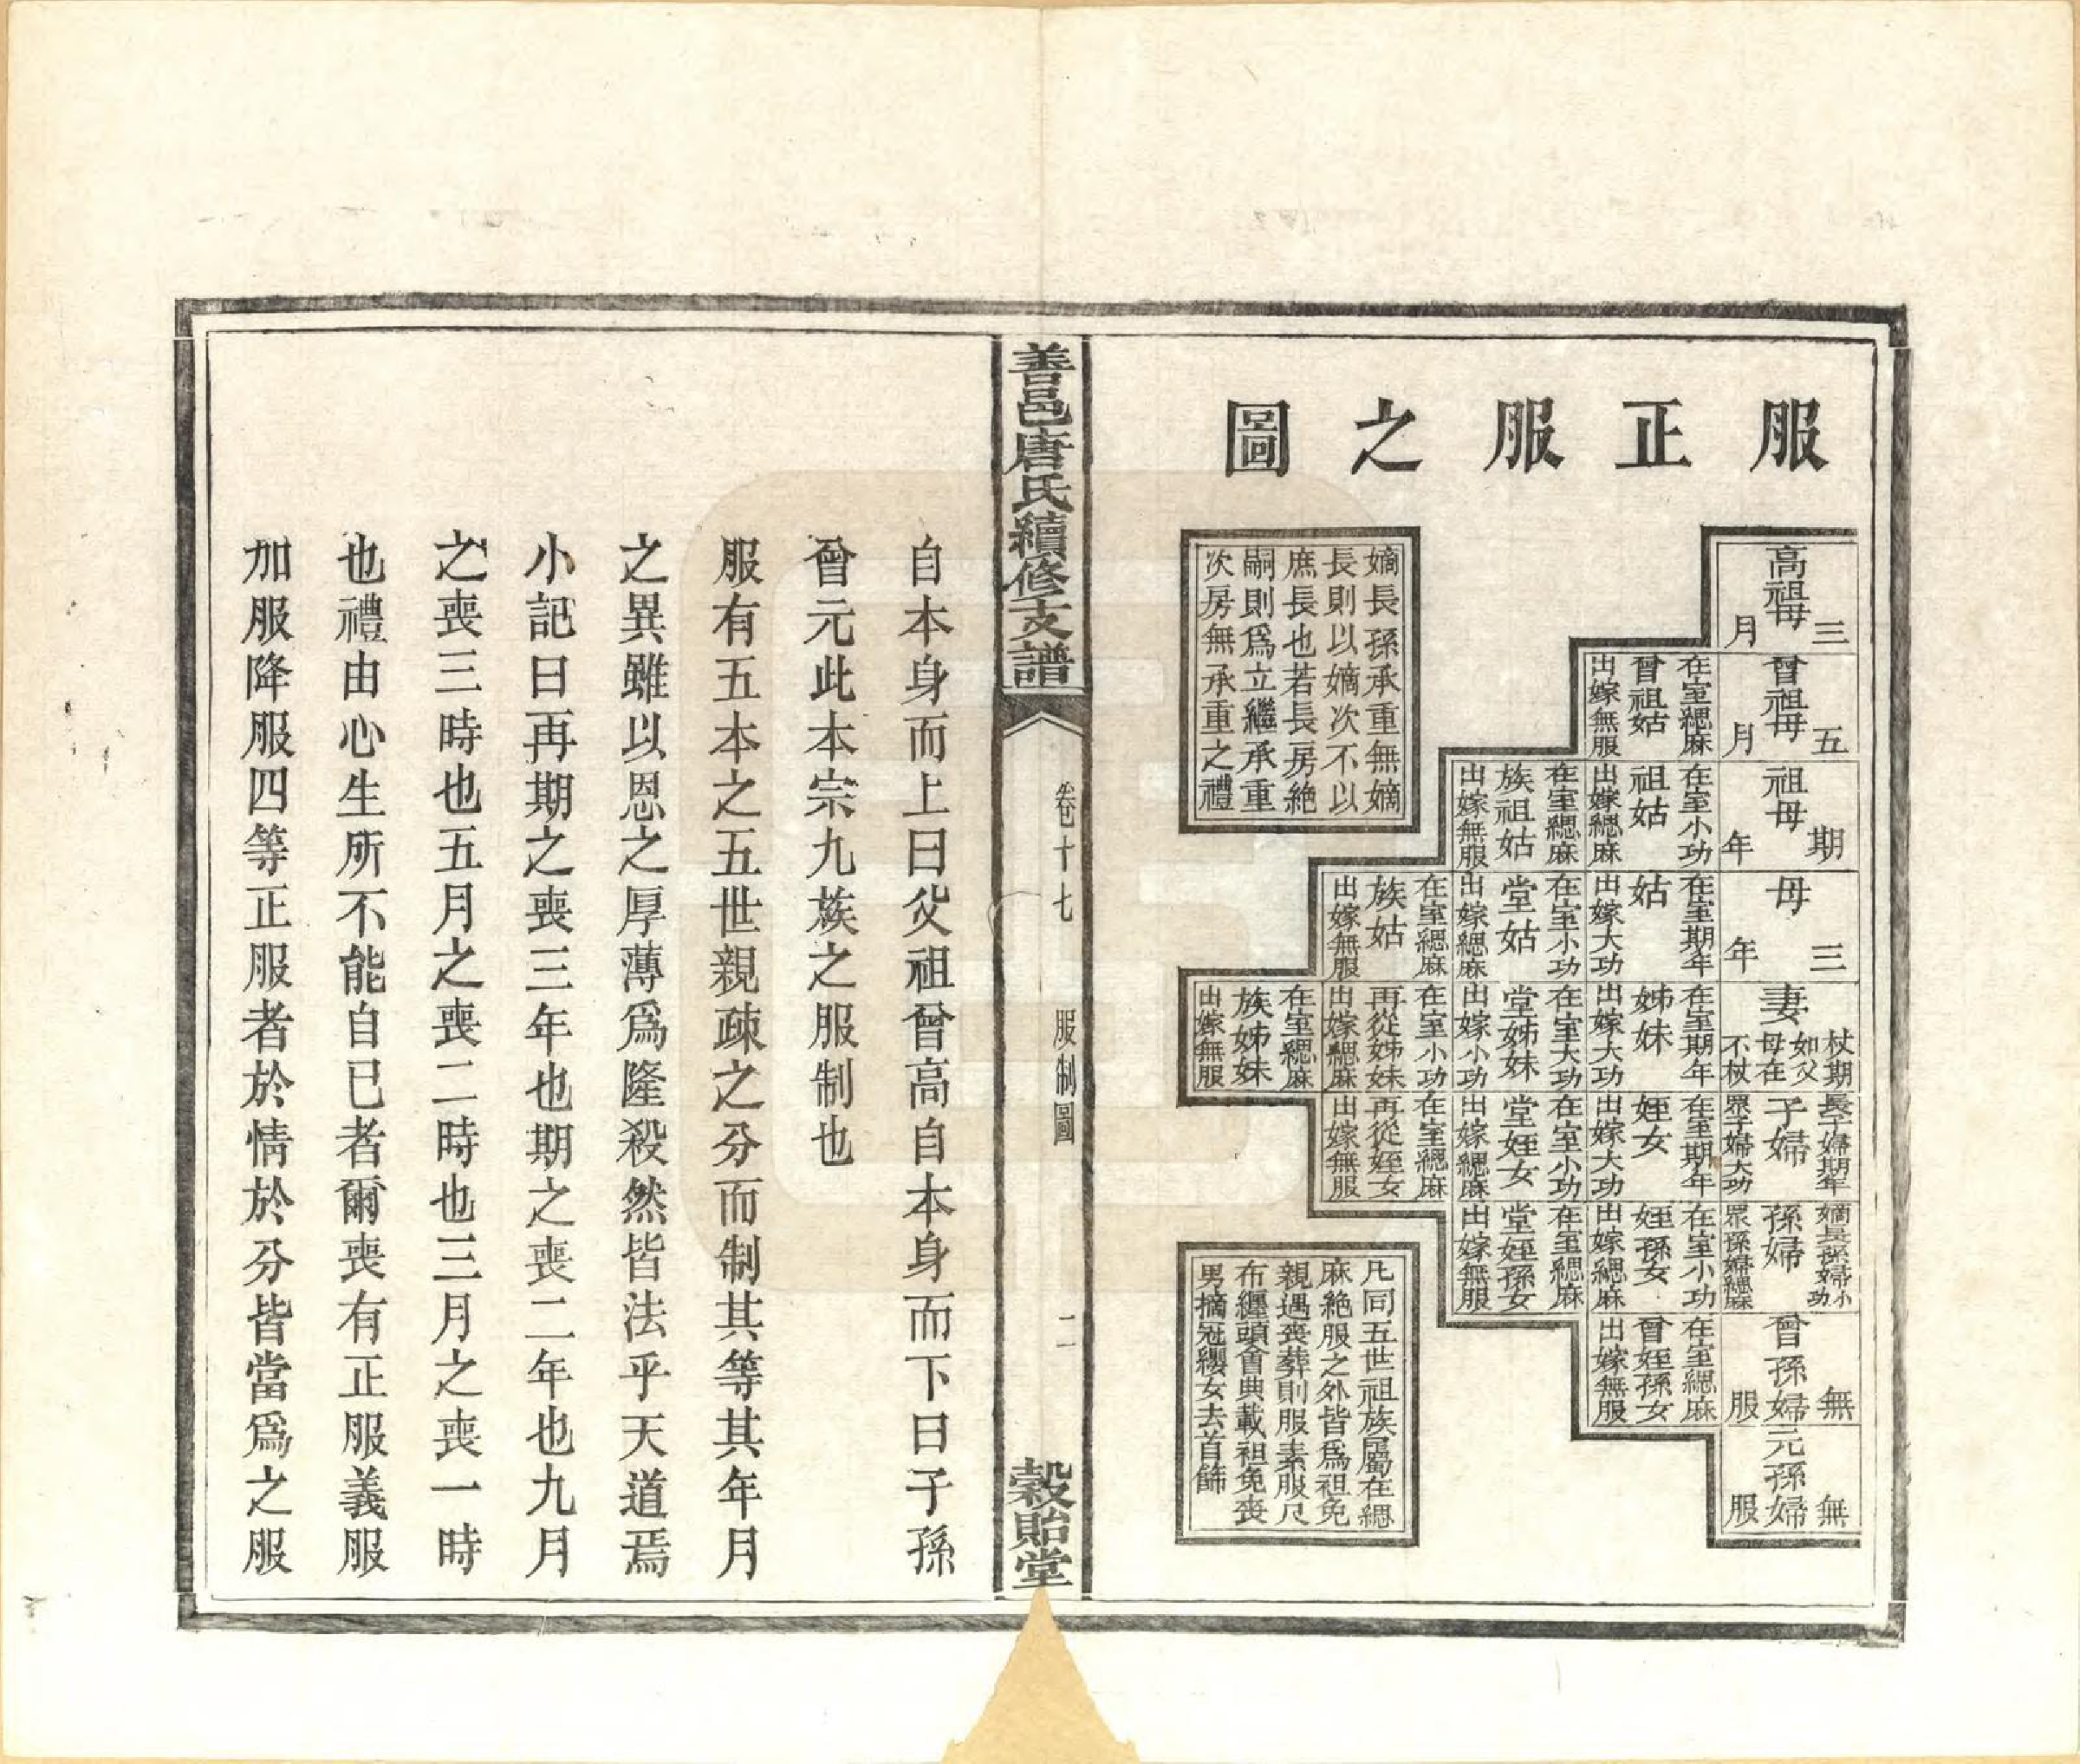 服正服之圖
嫡長孫承重無嫡
長則以嫡次不以
庶長也若長房絶
嗣則爲立繼承重
次房無承重之禮
高祖母 三月
曾祖母 五月
曾祖姑 在室緦麻 出嫁無服
祖母 期年
祖姑 在室小功 出嫁緦麻
族祖姑 在室緦麻 出嫁無服
母 三年
姑 在室期年 出嫁大功
堂姑 在室小功 出嫁緦麻
族姑 在室緦麻 出嫁無服
妻 杖期 如父母在不杖
姊妹 在室期年 出嫁大功
堂姊妹 在室大功 出嫁小功
再從姊妹 在室小功 出嫁緦麻
族姊妹 在室緦麻 出嫁無服
子婦 長子婦期年 眾子婦大功
姪女 在室期年 出嫁大功
堂姪女 在室小功 出嫁緦麻
再從姪女 在室緦麻 出嫁無服
孫婦 嫡長孫婦小功 眾孫婦緦麻
姪孫女 在室小功 出嫁緦麻
堂姪孫女 在室緦麻 出嫁無服
曾孫婦 無服
曾姪孫女 在室緦麻 出嫁無服
元孫婦 無服
凡同五世祖族屬在緦
麻絶服之外皆爲袒免
親遇喪葬則服素服尺
布纏頭會典載袒免喪
男摘冠纓女去首飾
善邑唐氏續修支譜
卷十七 服制圖 二
榖貽堂
自本身而上曰父祖曾高自本身而下曰子孫
曾元此本宗九族之服制也
服有五本之五世親疎之分而制其等其年月
之異雖以恩之厚薄爲隆殺然皆法乎天道焉
小記曰再期之喪三年也期之喪二年也九月
之喪三時也五月之喪二時也三月之喪一時
也禮由心生所不能自已者爾喪有正服義服
加服降服四等正服者於情於分皆當爲之服